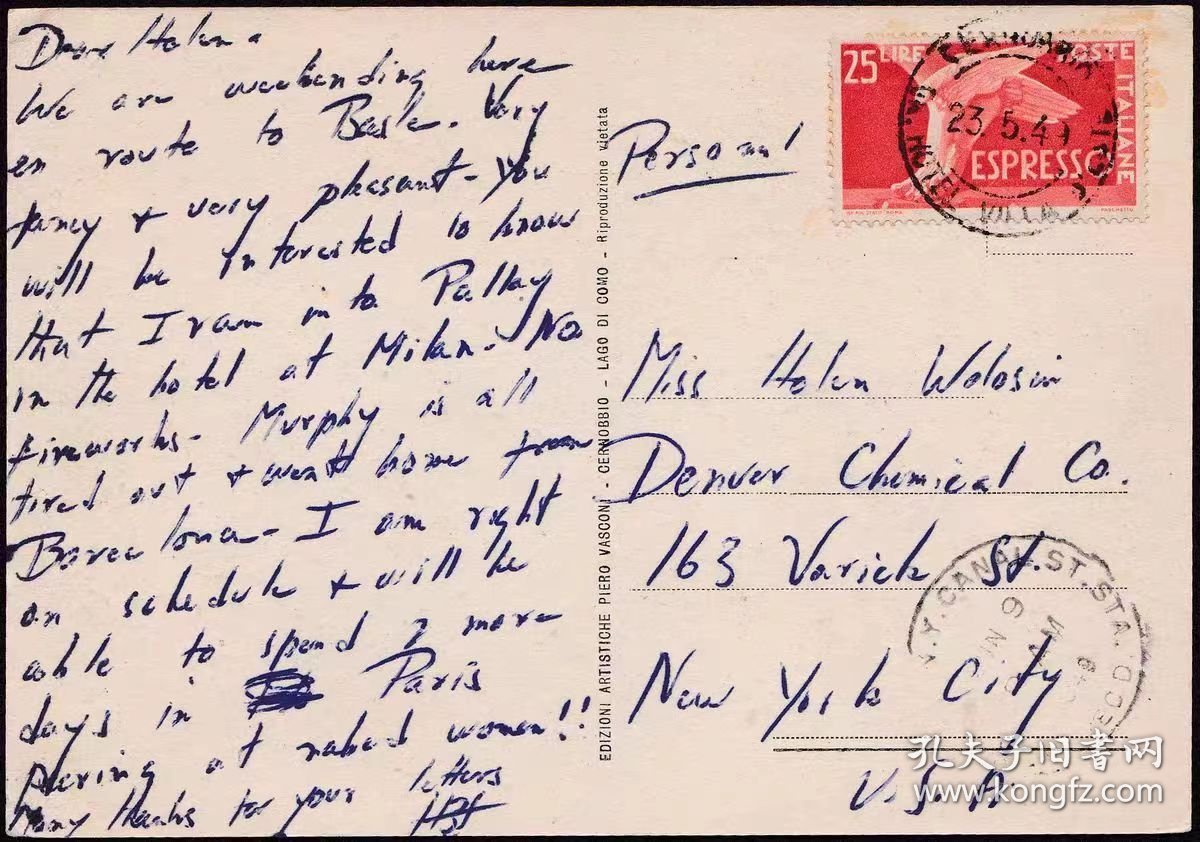 Dear Helen -
We are weekending here
en route to Basle. Very
fancy & very pleasant - You
will be interested to know
that I ran into Pallay
in the hotel at Milan. No
fireworks. Murphy is all
tired out & went home from
Barcelona - I am right
on schedule & will be
able to spend 2 more
days in Paris
peering at naked women!!
Many thanks for your letters
EDIZIONI ARTISTICHE PIERO VASCONI - CERNOBBIO - LAGO DI COMO - Riproduzione vietata
Personal
25 LIRE POSTE ITALIANE
ESPRESSO
IST. POL. STATO - ROMA PASCHETTO
23.5.49
HOTEL VILLA
Miss Helen Wolosin
Denver Chemical Co.
163 Varick St.
New York City
U.S.A
N.Y. CANAL ST. STA. REC'D
JUN 9
AM
孔夫子旧书网
www.kongfz.com